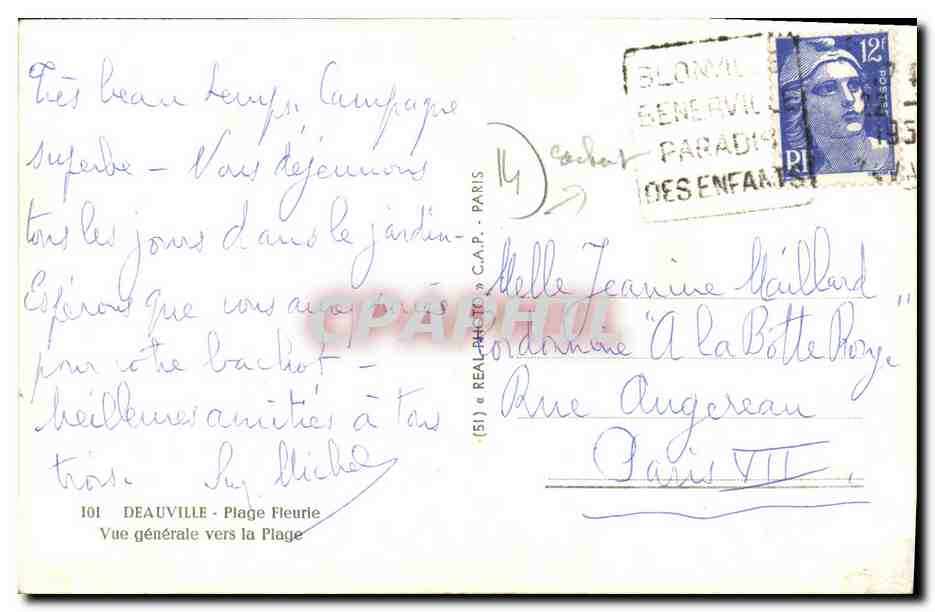 Très beau temps, Campagne
superbe - Nous déjeunons
tous les jours dans le jardin -
Espérons que vous avez
pour votre bachot -
Meilleures amitiés à tous
trois. Michel
101 DEAUVILLE - Plage Fleurie
Vue générale vers la Plage
(51) « REAL-PHOTO » C.A.P. - PARIS
14
cachet
BLONVILLE
BENERVILLE
PARADIS
DES ENFANTS
12F
POSTES
RF
Melle Jeanine Maillard
Cordonnerie "A la Botte Rouge"
Rue Augereau
Paris VII
CPAPHIL